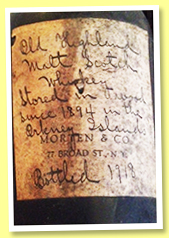 Old Highland
Malt Scotch
Whiskey
Stored in
since 1894 in the
Orkney Island.
MORTEN & CO.
77 BROAD ST., N.Y.
Bottled 1918